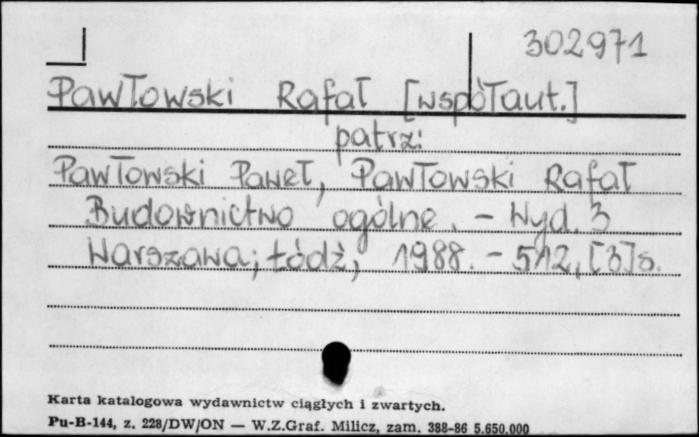 302971
Pawłowski Rafał [współaut.]
patrz:
Pawłowski Paweł, Pawłowski Rafał
Budownictwo ogólne. - Wyd. 3
Warszawa; Łódź, 1988. - 512, [3]s.
Karta katalogowa wydawnictw ciągłych i zwartych.
Pu-B-144, z. 228/DW/ON — W.Z.Graf. Milicz, zam. 388-86 5.650.000